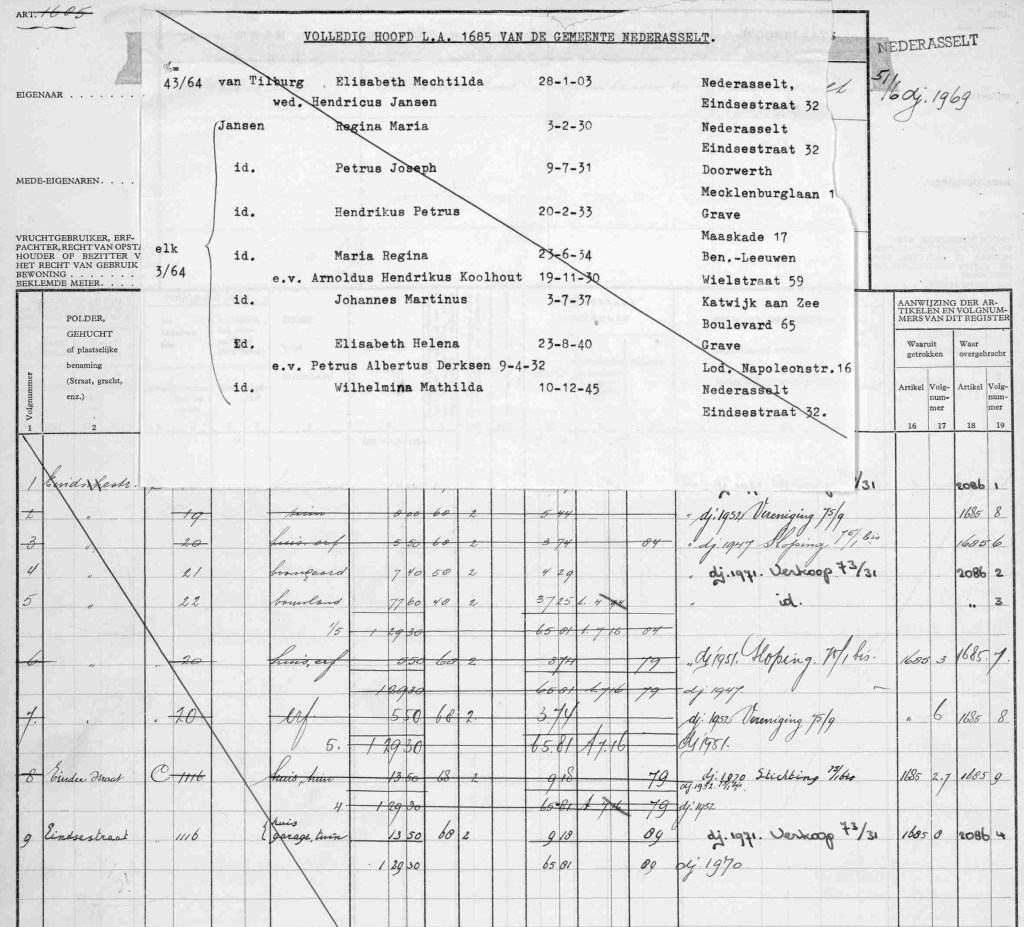 ART. 1685
VOLLEDIG HOOFD L.A. 1685 VAN DE GEMEENTE NEDERASSELT.
NEDERASSELT
51/6 dj. 1969
EIGENAAR
43/64 van Tilburg Elisabeth Mechtilda 28-1-03 Nederasselt,
wed. Hendricus Jansen Eindsestraat 32
Jansen Regina Maria 3-2-30 Nederasselt
Eindsestraat 32
id. Petrus Joseph 9-7-31 Doorwerth
MEDE-EIGENAREN. . . .
Mecklenburglaan 1
id. Hendrikus Petrus 20-2-33 Grave
Maaskade 17
VRUCHTGEBRUIKER, ERF-
PACHTER, RECHT VAN OPSTA
HOUDER OF BEZITTER V
HET RECHT VAN GEBRUIK
BEWONING . . . . . . .
BEKLEMDE MEIER. . . .
elk
3/64
id. Maria Regina 23-6-34 Ben.-Leeuwen
e.v. Arnoldus Hendrikus Koolhout 19-11-30 Wielstraat 59
id. Johannes Martinus 3-7-37 Katwijk aan Zee
Boulevard 65
id. Elisabeth Helena 23-8-40 Grave
e.v. Petrus Albertus Derksen 9-4-32 Lod. Napoleonstr. 16
id. Wilhelmina Mathilda 10-12-45 Nederasselt
Eindsestraat 32.
Volgnummer
POLDER,
GEHUCHT
of plaatselijke
benaming
(Straat, gracht,
enz.)
AANWIJZING DER AR-
TIKELEN EN VOLGNUM-
MERS VAN DIT REGISTER
Waaruit getrokken
Waar overgebracht
Artikel Volg-num-mer Artikel Volg-num-mer
1 2 16 17 18 19
1 /31 2086 1
2 " 19 tuin 8 00 68 2 5 44 " dj. 1952 Vereniging 75/9 1685 8
3 " 20 huis, erf 5 50 68 2 3 74 84 " dj. 1947 Sloping 75/1 bis 1685 6
4 " 21 boomgaard 7 40 58 2 4 29 " dj. 1971. Verkoop 73/31 2086 2
5 " 22 bouwland 77 60 48 2 37 25 " id. " 3
1/5 1 29 30 65 81 84
6 " 20 huis, erf 5 50 68 2 3 74 79 " dj 1951. Sloping 75/1 bis. 1685 3 1685 7
1 29 30 65 81 79 dj 1947.
7. " 20 erf 5 50 68 2 3.74 dj. 1952 Vereniging 75/9 " 6 1685 8
5. 1 29 30 65.81 A 7.16 dj 1951.
8 Eindse straat C 1116 huis, tuin 13 50 68 2 9 18 79 dj. 1970 Stichting 75/bis 1685 2.7 1685 9
4 1 29 30 65 81 A 7.16 79 dj 1952
9 Eindsestraat 1116 huis garage, tuin 13 50 68 2 9 18 89 dj. 1971. Verkoop 73/31 1685 8 2086 4
1 29 30 65 81 89 dj 1970